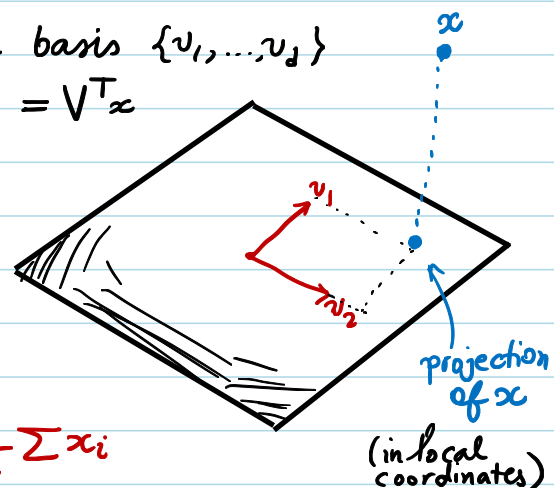 basis {v₁,...,v_d}
= Vᵀx
x
v₁
v₂
projection
of x
Σxᵢ
(in local
coordinates)